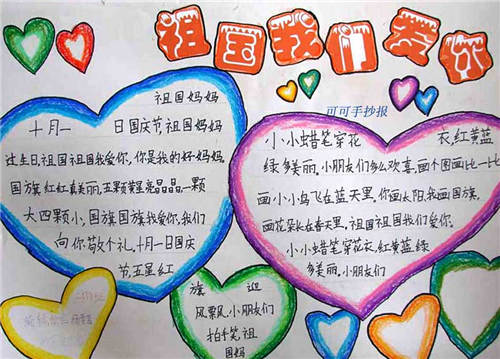 祖国我们爱你
可可手抄报
祖国妈妈
十月一 日国庆节,祖国妈妈
过生日,祖国祖国我爱你,你是我的好妈妈
国旗红红真美丽,五颗黄星亮晶晶,一颗
大四颗小,国旗国旗我爱你,我们
向你敬个礼,十月一日国庆
节,五星红
小小蜡笔穿花 衣,红黄蓝
绿多美丽,小朋友们多么欢喜,画个图画比一比
画小小鸟飞在蓝天里,你画太阳,我画国旗,
画花朵长在春天里,祖国祖国我们爱你。
小小蜡笔穿花衣,红黄蓝绿
多美丽,小朋友们
旗 迎
风飘飘,小朋友们
拍手笑,祖
国妈